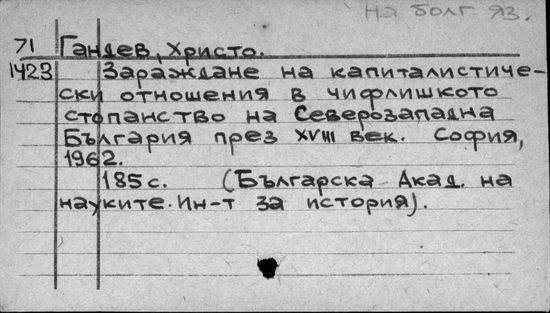 на болг. яз.
71 Гандев, Христо.
1423 Зараждане на капиталистиче-
ски отношения в чифлишкото
стопанство на Северозападна
България през XVIII век. София,
1962.
185 с. (Българска Акад. на
науките. Ин-т за история).